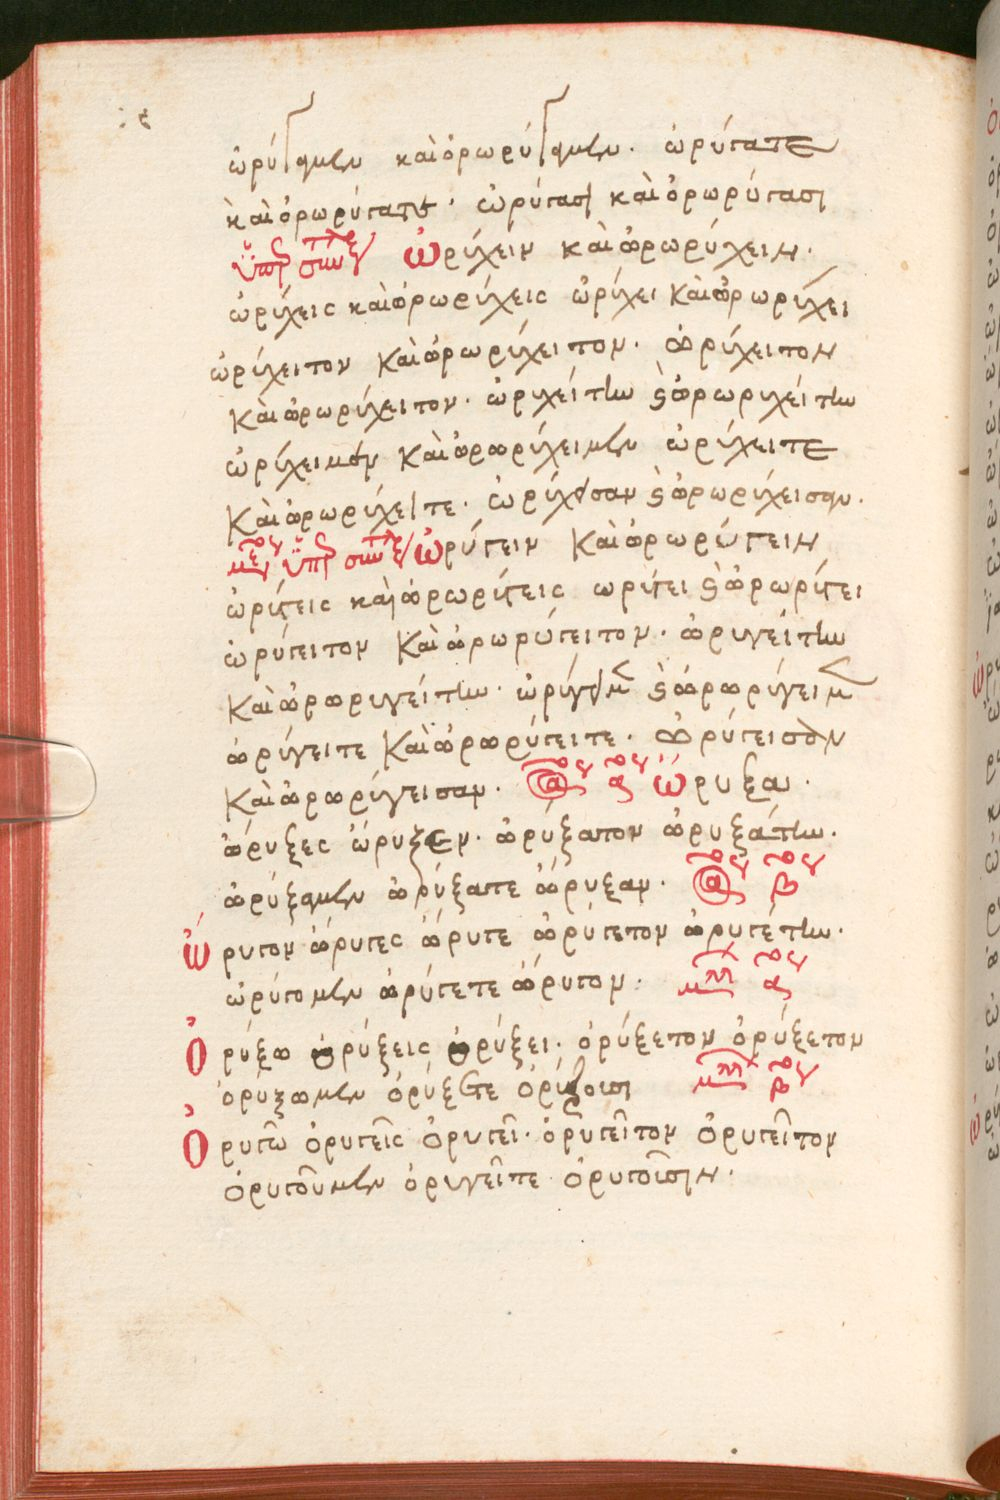 ὠρύγαμεν καὶ ὀρωρύγαμεν. ὠρύγατε
καὶ ὀρωρύγατε. ὠρύγασι καὶ ὀρωρύγασι
ὠρύχειν καὶ ὠρωρύχειν.
ὠρύχεις καὶ ὀρωρύχεις ὠρύχει καὶ ὠρωρύχει
ὠρύχειτον καὶ ὠρωρύχειτον. ὠρύχειτον
καὶ ὠρωρύχειτον. ὠρυχείτην καὶ ὠρωρυχείτην
ὠρύχειμεν καὶ ὠρωρύχειμεν ὠρύχειτε
καὶ ὠρωρύχειτε. ὠρύχεισαν καὶ ὀρωρύχεισαν.
ὠρύγειν καὶ ὠρωρύγειν
ὠρύγεις καὶ ὠρωρύγεις ὠρύγει καὶ ὠρωρύγει
ὠρύγειτον καὶ ὠρωρύγειτον. ὠρυγείτην
καὶ ὠρωρυγείτην. ὠρύγειμεν καὶ ὠρωρύγειμεν
ὠρύγειτε καὶ ὠρωρύγειτε. ὠρύγεισαν
καὶ ὠρωρύγεισαν. ἀορ α ὤρυξα.
ὤρυξες ὤρυξεν. ὠρύξατον ὠρυξάτην.
ὠρύξαμεν ὠρύξατε ὤρυξαν. ἀορ β
ὤρυγον ὤρυγες ὤρυγε ὠρύγετον ὠρυγέτην.
ὠρύγομεν ὠρύγετε ὤρυγον. μελλ α
ὀρύξω ὀρύξεις ὀρύξει. ὀρύξετον ὀρύξετον
ὀρύξωμεν ὀρύξετε ὀρύξοισι μελλ β
ὀρυγῶ ὀρυγεῖς ὀρυγεῖ. ὀρυγεῖτον ὀρυγεῖτον
ὀρυγοῦμεν ὀρυγεῖτε ὀρυγοῖσιν.